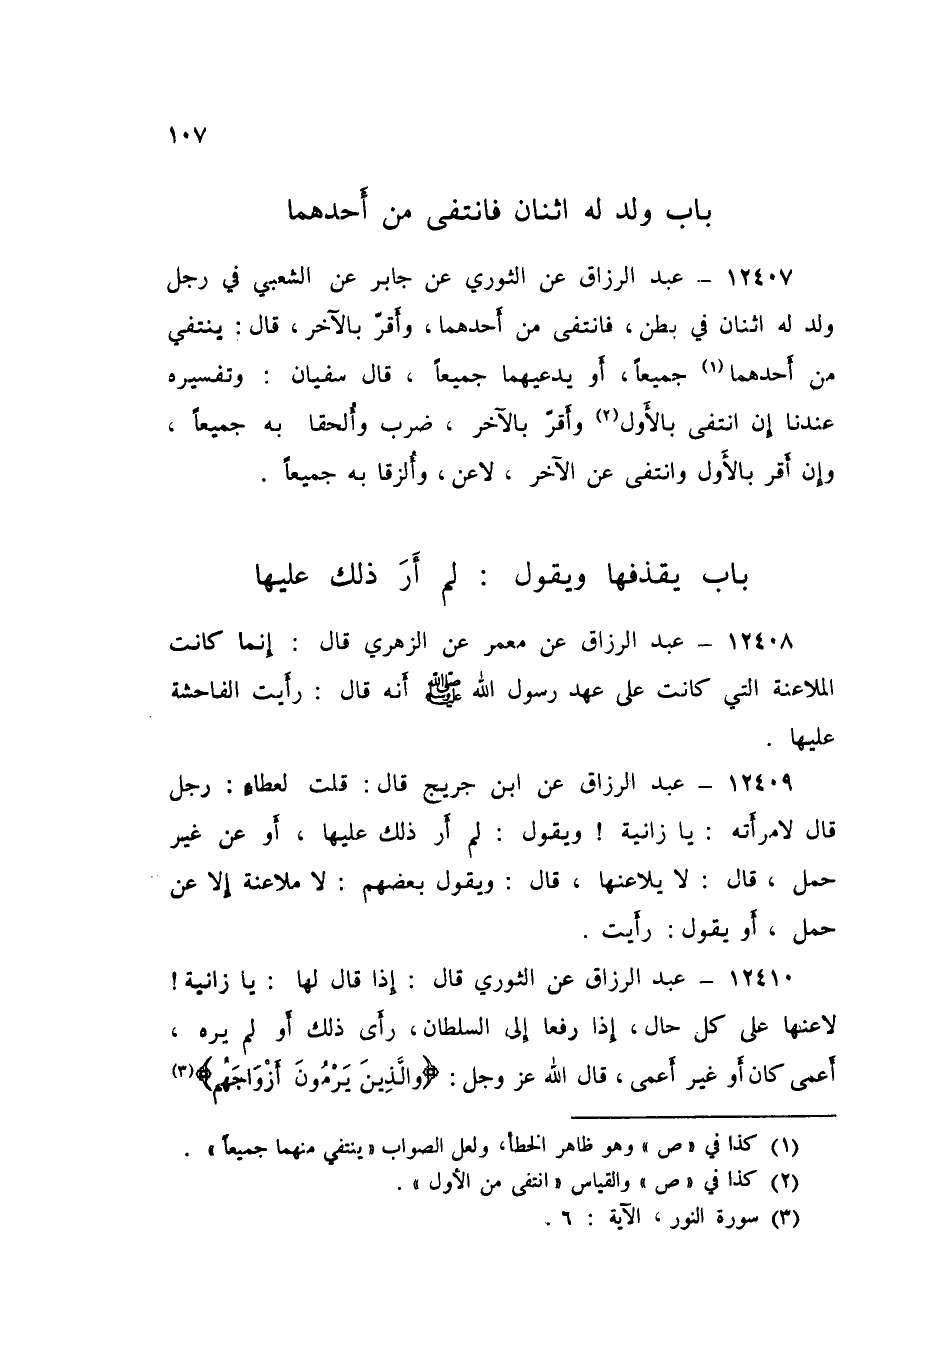 ١٠٧
باب ولد له اثنان فانتفى من أَحدهما
١٢٤٠٧ – عبد الرزاق عن الثوري عن جابر عن الشعبي في رجل
ولد له اثنان في بطن ، فانتفى من أَحدهما ، وأَقرّ بالآخر ، قال : ينتفي
من أَحدهما (١) جميعاً ، أَو يدعيهما جميعاً ، قال سفيان : وتفسيره
عندنا إن انتفى بالأَول (٢) وأَقرّ بالآخر ، ضرب وأُلحقا به جميعاً ،
وإن أَقر بالأَول وانتفى عن الآخر ، لاعن ، وأُلزقا به جميعاً .
باب يقذفها ويقول : لم أَرَ ذلك عليها
١٢٤٠٨ – عبد الرزاق عن معمر عن الزهري قال : إنما كانت
الملاعنة التي كانت على عهد رسول الله ﷺ أَنه قال : رأَيت الفاحشة
عليها .
١٢٤٠٩ – عبد الرزاق عن ابن جريج قال : قلت لعطاء : رجل
قال لامرأَته : يا زانية ! ويقول : لم أَر ذلك عليها ، أَو عن غير
حمل ، قال : لا يلاعنها ، قال : ويقول بعضهم : لا ملاعنة إلا عن
حمل ، أَو يقول : رأَيت .
١٢٤١٠ – عبد الرزاق عن الثوري قال : إذا قال لها : يا زانية !
لاعنها على كل حال ، إذا رفعا إلى السلطان ، رأَى ذلك أَو لم يره ،
أَعمى كان أَو غير أَعمى ، قال الله عز وجل : ﴿والَّذِينَ يَرْمُونَ أَزْوَاجَهُم﴾ (٣)
(١) كذا في «ص» وهو ظاهر الخطأ، ولعل الصواب «ينتفي منهما جميعاً» .
(٢) كذا في «ص» والقياس «انتفى من الأول» .
(٣) سورة النور ، الآية : ٦ .